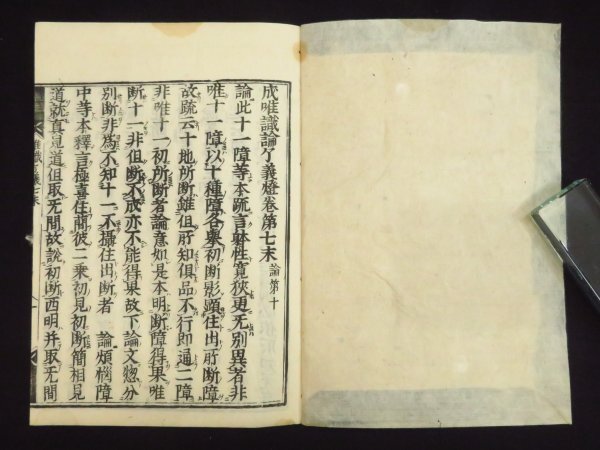 成唯識論了義燈卷第七末 論第十
論此十一障等本疏言躰性寬狹更无別異者非
唯十一障以十種障各舉初断影顕住出所断障
故疏云十地所断雖但所知俱品不行即通二障
非唯十一初所断者論意如是本明断障得果唯
断十一非但断不成亦不能得果故下論文惣分
別断非為不知十一不攝住出断者 論煩惱障
中等本釋言極喜住簡彼二乗初見初断簡相見
道就真見道但取无間故說初断西明并取无間